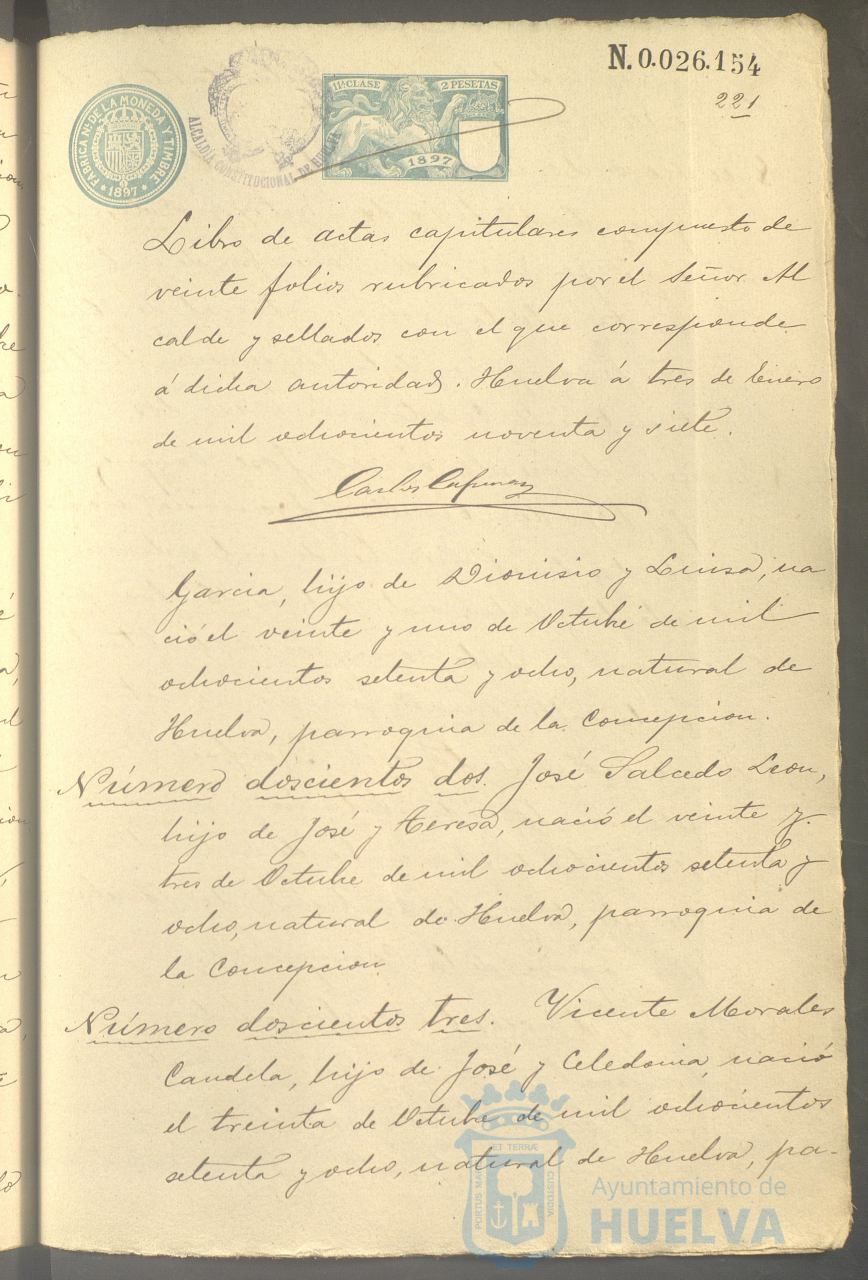 N. 0.026.154
221
FABRICA NL. DE LA MONEDA Y TIMBRE
1897
ALCALDÍA CONSTITUCIONAL DE HUELVA
11ª CLASE 2 PESETAS
1897
Libro de actas capitulares compuesto de
veinte folios rubricados por el Señor Al
calde y sellados con el que corresponde
á dicha autoridad. Huelva á tres de Enero
de mil ochocientos noventa y siete.
Carlos
Garcia, hijo de Dionisio y Luisa, na
ció el veinte y uno de Octubre de mil
ochocientos setenta y ocho, natural de
Huelva, parroquia de la Concepcion.
Número doscientos dos. José Salcedo Leon,
hijo de José y Teresa, nació el veinte y
tres de Octubre de mil ochocientos setenta y
ocho, natural de Huelva, parroquia de
la Concepcion
Número doscientos tres. Vicente Morales
Candela, hijo de José y Celedonia, nació
el treinta de Octubre de mil ochocientos
setenta y ocho, natural de Huelva, pa-
PORTUS MARIS ET TERRÆ CUSTODIA
Ayuntamiento de
HUELVA